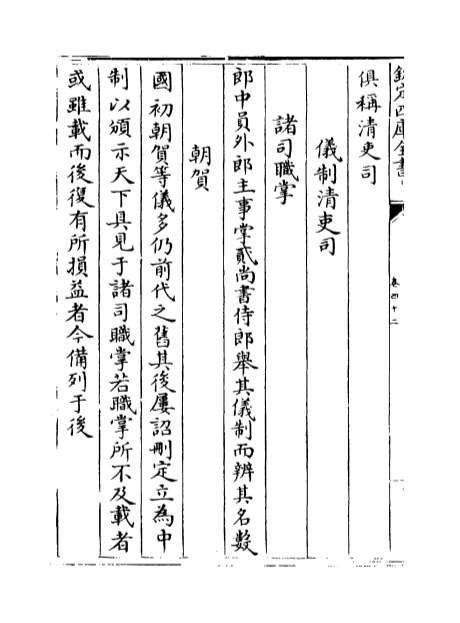 欽定四庫全書
卷四十二
俱稱清吏司
儀制清吏司
諸司職掌
郎中員外郎主事掌貳尚書侍郎舉其儀制而辨其名數
朝賀
國初朝賀等儀多仍前代之舊其後屢詔刪定立為中
制以頒示天下具見于諸司職掌若職掌所不及載者
或雖載而後復有所損益者今備列于後